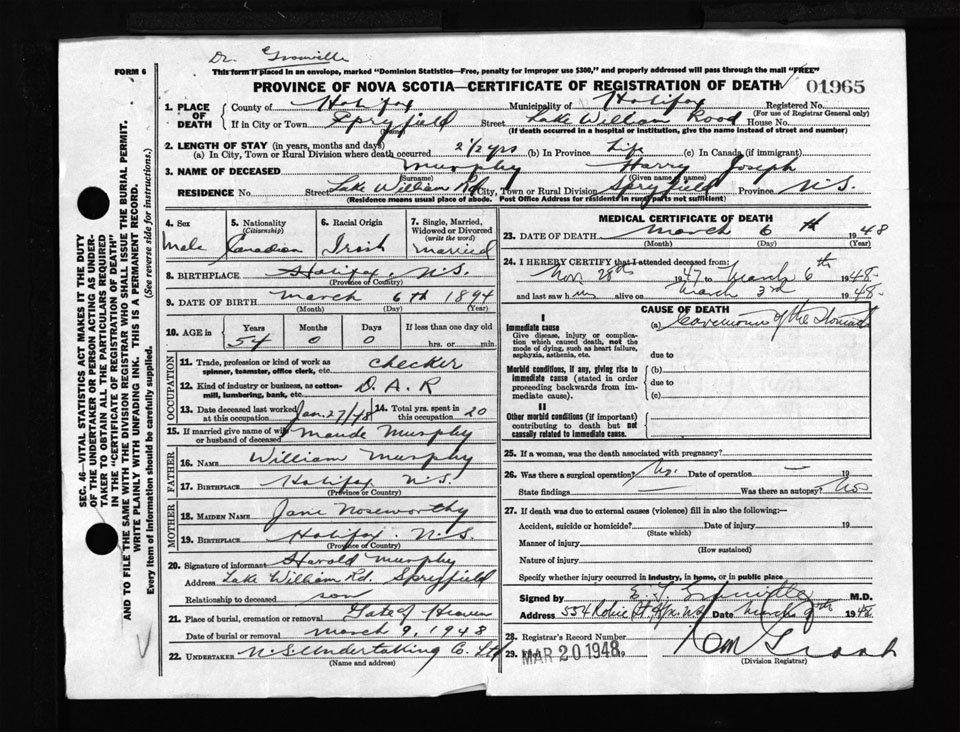 Dr. Granville
FORM 6
This form if placed in an envelope, marked "Dominion Statistics—Free, penalty for improper use $300," and properly addressed will pass through the mail "FREE"
PROVINCE OF NOVA SCOTIA—CERTIFICATE OF REGISTRATION OF DEATH 01965
1. PLACE OF DEATH County of Halifax Municipality of Halifax Registered No.
(For use of Registrar General only)
If in City or Town Spryfield Street Lake William Road House No.
(If death occurred in a hospital or institution, give the name instead of street and number)
2. LENGTH OF STAY (in years, months and days)
(a) In City, Town or Rural Division where death occurred 2 1/2 yrs (b) In Province Life (c) In Canada (if immigrant)
3. NAME OF DECEASED Murphy Harry Joseph
(Surname) (Given name or names)
RESIDENCE No. Street Lake William Rd. City, Town or Rural Division Spryfield Province N.S.
(Residence means usual place of abode. Post Office Address for residents in rural parts not sufficient)
4. Sex
Male
5. Nationality
(Citizenship)
Canadian
6. Racial Origin
Irish
7. Single, Married, Widowed or Divorced
(write the word)
Married
8. BIRTHPLACE Halifax. N.S.
(Province or Country)
9. DATE OF BIRTH March 6th 1894
(Month) (Day) (Year)
10. AGE in Years Months Days If less than one day old
54 0 0 hrs. or min.
OCCUPATION
11. Trade, profession or kind of work as spinner, teamster, office clerk, etc. Checker
12. Kind of industry or business, as cotton-mill, lumbering, bank, etc. D.A.R
13. Date deceased last worked at this occupation Jan. 27/48 14. Total yrs. spent in this occupation 20
15. If married give name of wife or husband of deceased Maude Murphy
FATHER
16. NAME William Murphy
17. BIRTHPLACE Halifax N.S.
(Province or Country)
MOTHER
18. MAIDEN NAME Jane Noseworthy
19. BIRTHPLACE Halifax. N.S.
(Province or Country)
20. Signature of informant Harold Murphy
Address Lake William Rd. Spryfield
Relationship to deceased son
21. Place of burial, cremation or removal Gate of Heaven
Date of burial or removal March 9, 1948
22. UNDERTAKER N.S. Undertaking Co. Ltd
(Name and address)
MEDICAL CERTIFICATE OF DEATH
23. DATE OF DEATH March 6th 1948
(Month) (Day) (Year)
24. I HEREBY CERTIFY that I attended deceased from:
Nov. 28th 1947 to March 6th 1948
and last saw him alive on March 3rd 1948
CAUSE OF DEATH
I
Immediate cause
Give disease, injury or complication which caused death, not the mode of dying, such as heart failure, asphyxia, asthenia, etc.
(a) Carcinoma of the Stomach
due to
Morbid conditions, if any, giving rise to immediate cause (stated in order proceeding backwards from immediate cause).
(b)
due to
(c)
II
Other morbid conditions (if important) contributing to death but not causally related to immediate cause.
25. If a woman, was the death associated with pregnancy?
26. Was there a surgical operation? Date of operation — 19
State findings — Was there an autopsy? No
27. If death was due to external causes (violence) fill in also the following:—
Accident, suicide or homicide? Date of injury 19
(State which)
Manner of injury
(How sustained)
Nature of injury
Specify whether injury occurred in industry, in home, or in public place
Signed by E. J. Granville M.D.
Address 554 Robie St. Hfx. N.S. Date March 9th 1948
28. Registrar's Record Number
29. Filed MAR 20 1948 19
(Division Registrar)
SEC. 46—VITAL STATISTICS ACT MAKES IT THE DUTY
OF THE UNDERTAKER OR PERSON ACTING AS UNDER-
TAKER TO OBTAIN ALL THE PARTICULARS REQUIRED
IN THE "CERTIFICATE OF REGISTRATION OF DEATH"
AND TO FILE THE SAME WITH THE DIVISION REGISTRAR WHO SHALL ISSUE THE BURIAL PERMIT.
WRITE PLAINLY WITH UNFADING INK. THIS IS A PERMANENT RECORD.
Every item of information should be carefully supplied. (See reverse side for instructions.)